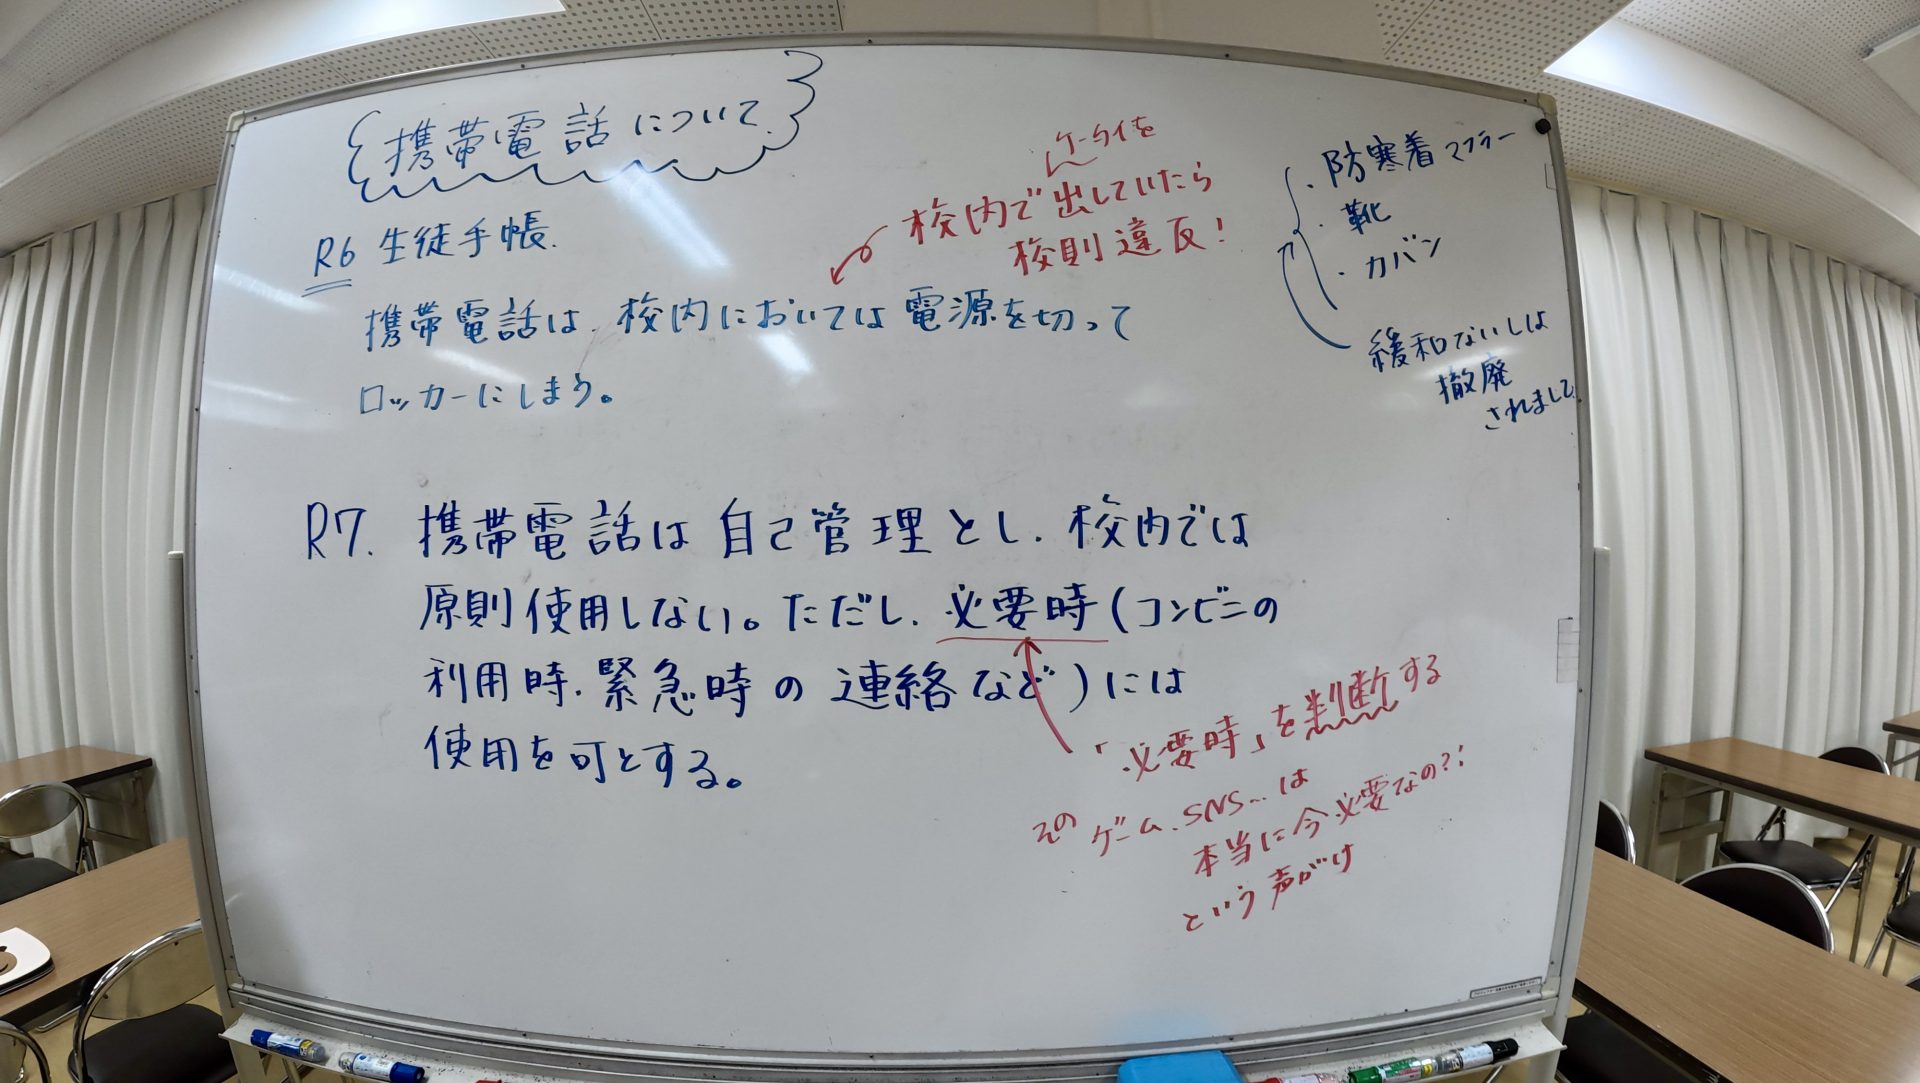 携帯電話について
R6 生徒手帳.
携帯電話は、校内においては電源を切って
ロッカーにしまう。
ケータイを
校内で出していたら
校則違反!
・防寒着 マフラー
・靴
・カバン
緩和ないしは
撤廃
されまして
R7. 携帯電話は自己管理とし、校内では
原則使用しない。ただし、必要時(コンビニの
利用時、緊急時の連絡など)には
使用を可とする。
「必要時」を判断する
そのゲーム、SNS…は
本当に今必要なの?!
という声がけ